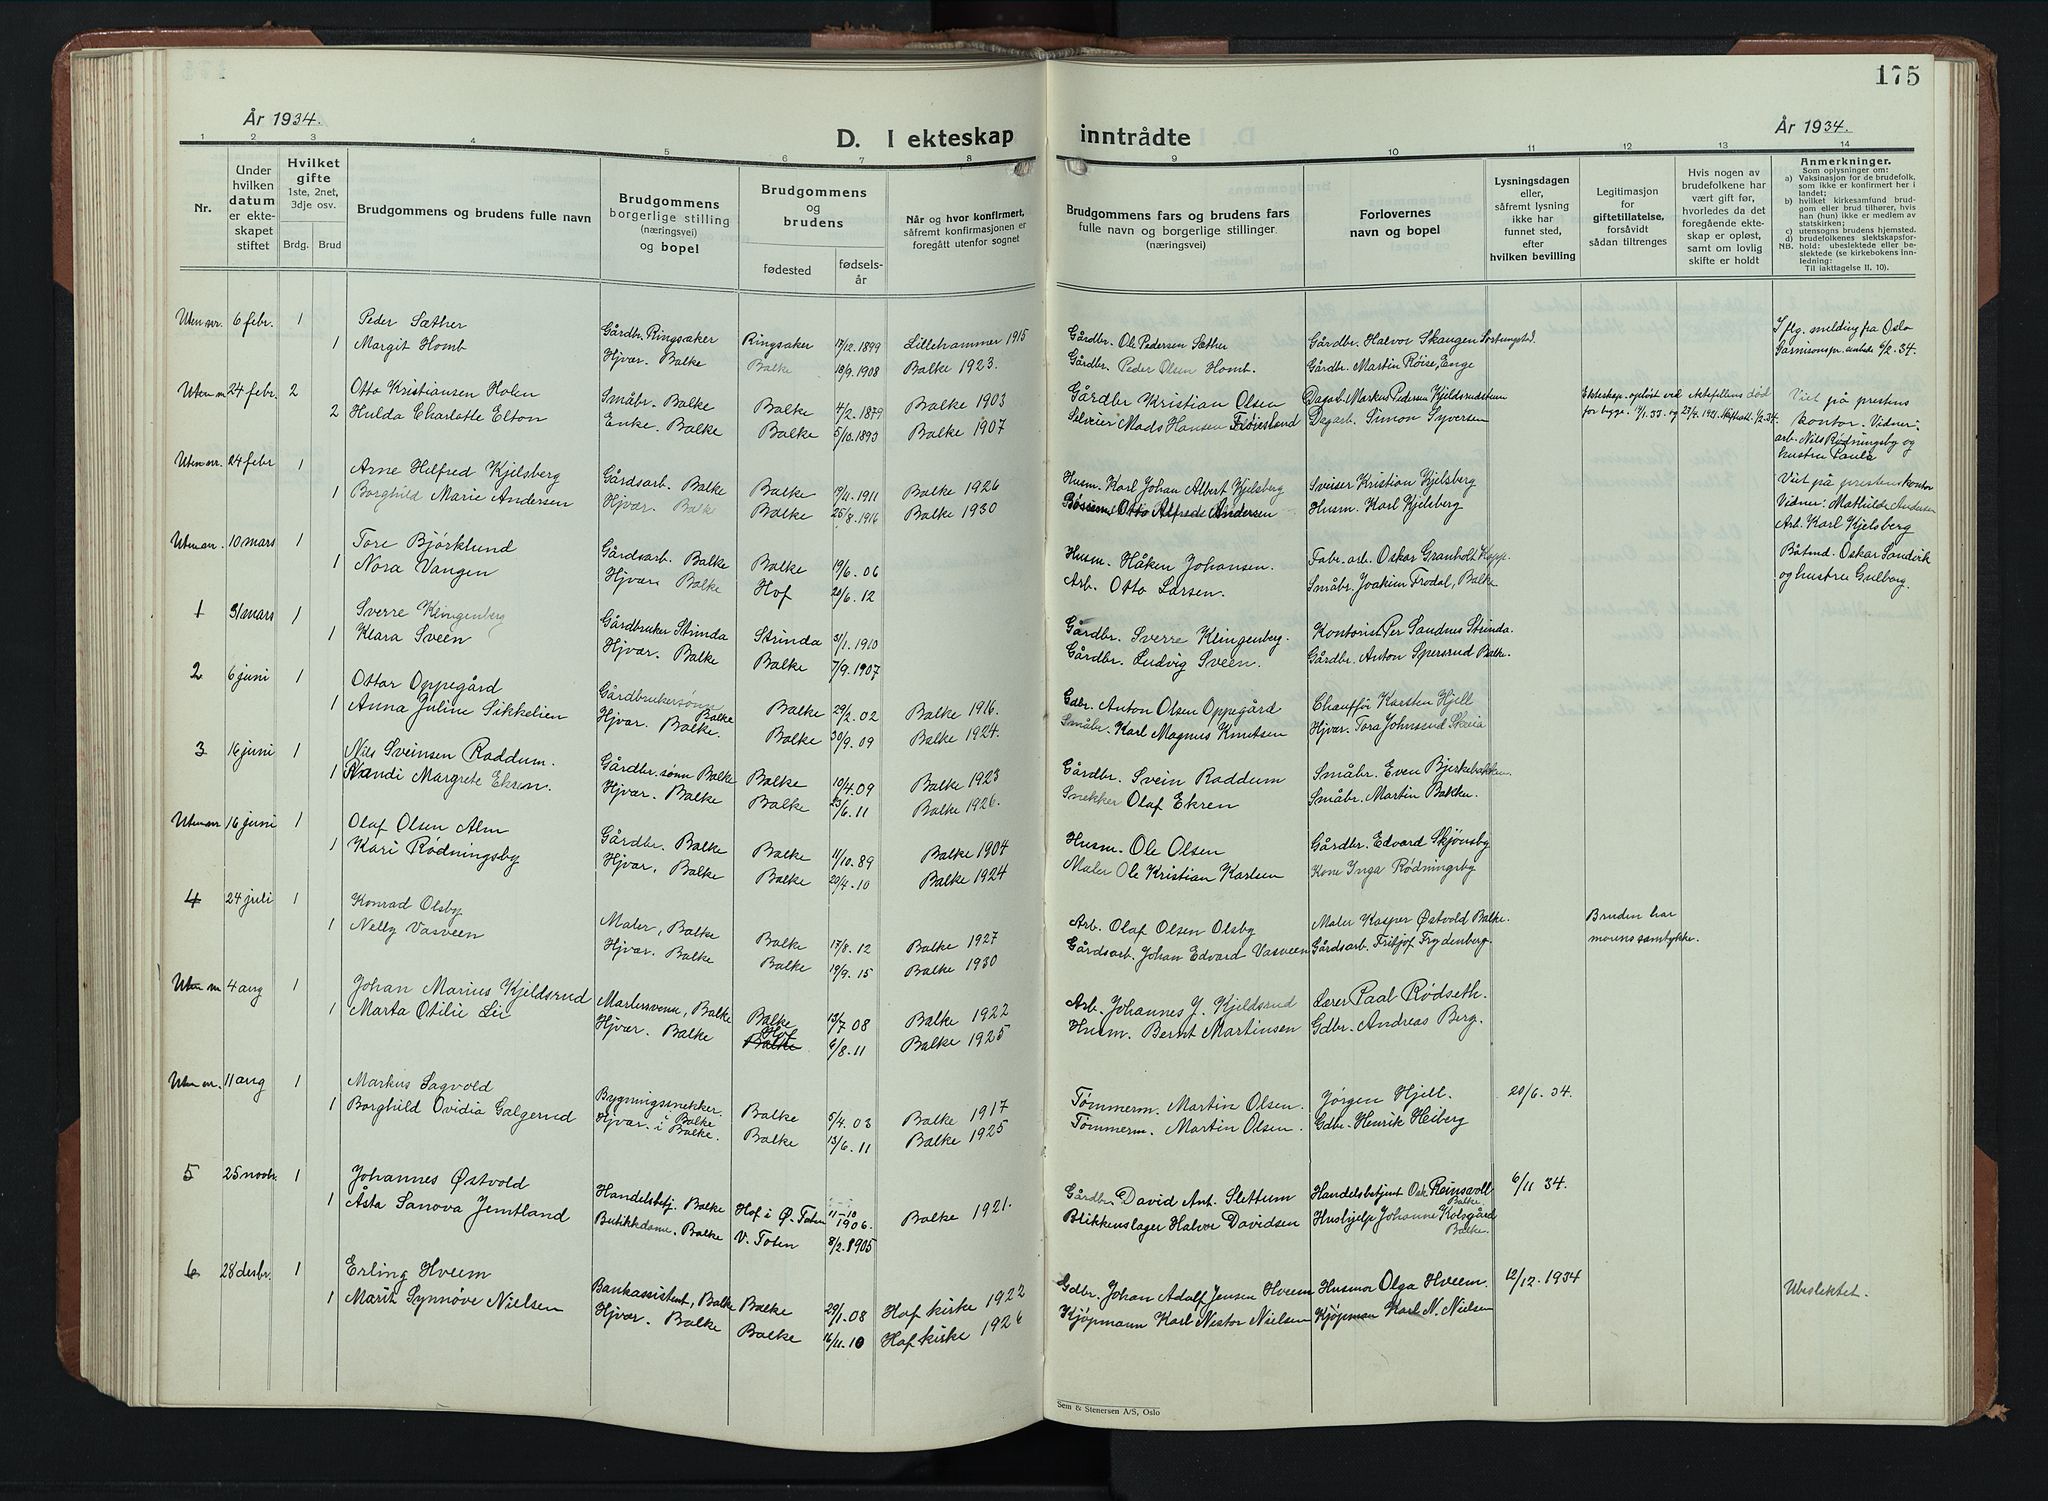 175
År 1934.
D. I ekteskap inntrådte
År 1934.
1 2 3 4 5 6 7 8 9 10 11 12 13 14
Nr.
Under hvilken datum er ekteskapet stiftet
Hvilket gifte 1ste, 2net, 3dje osv.
Brdg. Brud
Brudgommens og brudens fulle navn
Brudgommens borgerlige stilling (næringsvei) og bopel
Brudgommens og brudens
fødested fødselsår
Når og hvor konfirmert, såfremt konfirmasjonen er foregått utenfor sognet
Brudgommens fars og brudens fars fulle navn og borgerlige stillinger (næringsvei)
Forlovernes navn og bopel
Lysningsdagen eller, såfremt lysning ikke har funnet sted, efter hvilken bevilling
Legitimasjon for giftetillatelse, forsåvidt sådan tiltrenges
Hvis nogen av brudefolkene har vært gift før, hvorledes da det foregående ekteskap er opløst, samt om lovlig skifte er holdt
Anmerkninger.
Som oplysninger om:
a) Vaksinasjon for de brudefolk, som ikke er konfirmert her i landet;
b) hvilket kirkesamfund brudgom eller brud tilhører, hvis han (hun) ikke er medlem av statskirken;
c) utensogns brudens hjemsted.
d) brudefolkenes slektskapsforhold: ubeslektede eller beslektede (se kirkebokens innledning:
NB. Til iakttagelse II. 10).
Uten nr. 6 febr. 1 Peder Sæther Gårdbr. Ringsaker Ringsaker 17/12. 1899 Lillehammer 1915 Gårdbr. Ole Pedersen Sæther Gårdbr. Halvor Skaugen I flg. melding fra Oslo
1 Margit Homb Hjvær. Balke Balke 18/9. 1908 Balke 1923. Gårdbr. Peder Olsen Homb. Gårdbr. Martin Røise, Enge Garnisonspr. embede 6/2. 34.
Uten nr. 24 febr. 2 Otto Kristiansen Holen Småbr. Balke Balke 4/2. 1879 Balke 1903 Gårdbr Kristian Olsen Dagarb. Markus Pedersen Kjeldsrudstuen Ekteskap. opløst ved Aktefellens død Viet på prestens
2 Hulda Charlotte Elton Enke. Balke Balke 5/10. 1893 Balke 1907 Selveier Mads Hansen Frøisland Dagarb. Simon Syversen for begge. 11/1. 33. og 27/4. 1921. Skifteatt. 1/2. 34. kontor. Vidner:
arb. Nils Rødningsby og
hustru Paula
Uten nr. 24 febr 1 Arne Hilfred Kjelsberg Gårdsarb. Balke Balke 19/4. 1911 Balke 1926 Husm. Karl Johan Albert Kjelsberg Sveiser Kristian Kjelsberg Viet på prestens kontor
1 Borghild Marie Andersen Hjvær. Balke Balke 25/8. 1916 Balke 1930 Otto Alfred Andersen Husm. Karl Kjelsberg Vidner: Mathilde Andersen
Arb. Karl Kjelsberg
Uten nr. 10 mars 1 Tore Bjørklund Gårdsarb. Balke Balke 19/6. 06 Husm. Håken Johansen. Fabr. arb. Oskar Granholt Kapp. Båtmd. Oskar Sandvik
1 Nora Vangen Hjvær. Balke Hof 23/6. 12 Arb. Otto Larsen. Småbr. Joakim Frodal, Balke og hustru Gulborg.
1 31 mars 1 Sverre Klingenberg Gårdbruker Strinda Strinda 31/1. 1910 Gårdbr. Sverre Klingenberg. Kontorist Per Sandnes Strinda.
1 Klara Sveen Hjvær. Balke Balke 7/9. 1907 Gårdbr. Ludvig Sveen. Gårdbr. Anton Spersrud Balke.
2 6 juni 1 Ottar Oppegård Gårdbrukersønn Balke Balke 29/2. 02 Balke 1916. Gdbr. Anton Olsen Oppegård Chauffør Karsten Hjell
1 Anna Juline Sikkelien Hjvær. Balke. Balke 30/9. 09 Balke 1924. Småbr. Karl Magnus Knutsen Hjvær. Tora Johnsrud Skreia
3 16 juni 1 Nils Sveinsen Raddum. Gårdbr. sønn Balke Balke 10/4. 09 Balke 1923 Gårdbr. Svein Raddum Småbr. Even Bjerkebakken.
1 Randi Margrete Ekren. Hjvær. Balke Balke 23/6. 11 Balke 1926. Snekker Olaf Ekren Småbr. Martin Bakke.
Uten nr 16 juni 1 Olaf Olsen Alm Gårdbr. Balke Balke 11/10. 89 Balke 1904 Husm. Ole Olsen Gårdbr. Edvard Skjønsby
1 Kari Rødningsby Hjvær. Balke Balke 20/4. 10 Balke 1924 Maler Ole Kristian Karlsen Kone Inga Rødningsby
4 24 juli 1 Konrad Olsby Maler, Balke Balke 17/8. 12 Balke 1927 Arb. Olaf Olsen Olsby Maler Kasper Østvold Balke. Bruden har
1 Nelly Vasveen Hjvær. Balke Balke 19/9. 15 Balke 1930 Gårdsarb. Johan Edvard Vasveen Gårdsarb. Fritjof Frydenberg. morens samtykke.
Uten nr 4 aug 1 Johan Marius Kjeldsrud Malersvenn, Balke Balke 13/7 08 Balke 1922 Arb. Johannes J. Kjeldsrud Lærer Paal Rødseth.
1 Marta Otilie Lei Hjvær. Balke Hof Balke 6/8. 11 Balke 1925 Husm. Bernt Martinsen Gdbr. Andreas Berg.
Uten nr. 11 aug 1 Markus Sagvold Bygningssnekker. i Balke Balke 5/4. 03 Balke 1917 Tømmerm. Martin Olsen. Jørgen Hjell. 20/6. 34.
1 Borghild Ovidia Galgerud Hjvær. i Balke. Balke 13/6. 11 Balke 1925 Tømmerm. Martin Olsen. Gdbr. Henrik Heiberg
5 25 novbr. 1 Johannes Østvold Handelsbetj. Balke Hof i Ø. Toten 11-10 1906. Balke 1921. Gårdbr. David Ant. Slettum Handelsbetjent Osk. Reinsvoll Balke 6/11 34.
1 Åsta Sanova Jemtland Butikkdame. Balke V. Toten 8/2. 1905 Blikkenslager Halvor Davidsen Hushjelp Johanne Kolsgård Balke.
6 28 desbr. 1 Erling Hveem Bankassistent, Balke Balke 29/1. 08 Hof kirke 1922 Gdbr. Johan Adolf Jensen Hveem Husmor Olga Hveem. 12/12. 1934 Ubeslektet.
1 Marit Synnøve Nielsen Hjvær. Balke Balke 16/11. 10 Hof kirke 1926 Kjøpmann Karl Nestor Nielsen Kjøpman Karl N. Nielsen
Sem & Stenersen A/S, Oslo